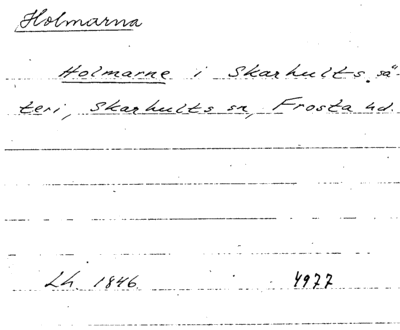 Holmarna
Holmarne i Skarhults sä-
teri, Skarhults sn, Frosta hd.
Lh. 1846 4977